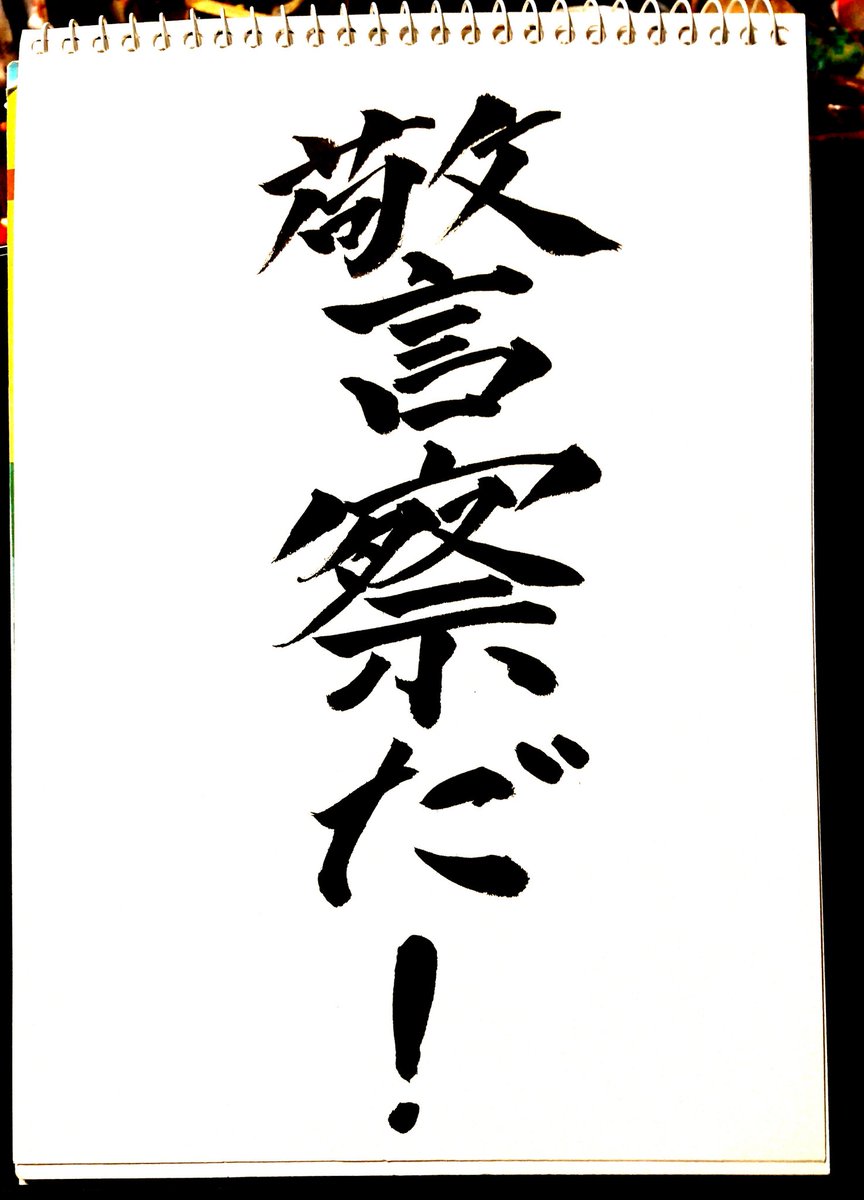 警察だ!